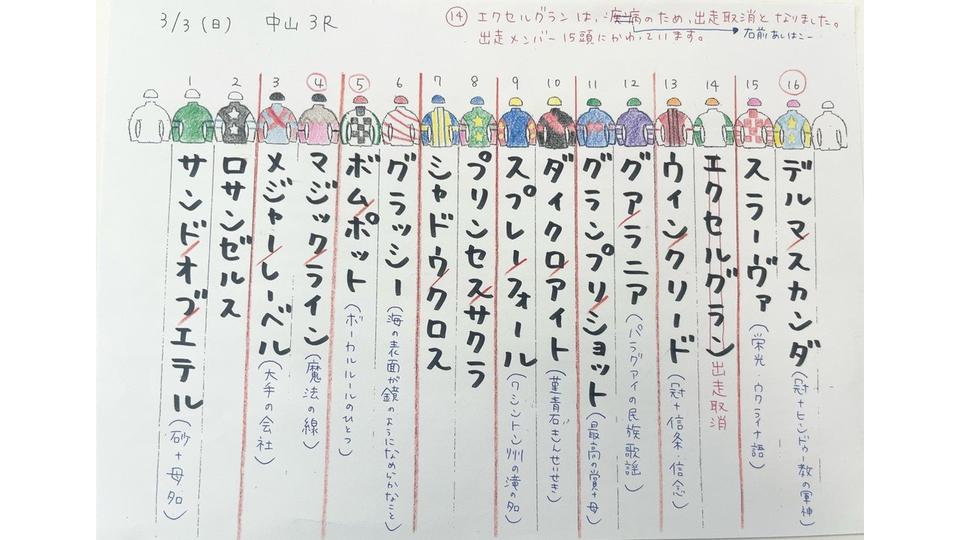 3/3(日) 中山 3R
⑭ エクセルグランは、疾病のため、出走取消となりました。
右前あしはこー
出走メンバー15頭にかわっています。
1 2 3 ④ ⑤ 6 7 8 9 10 11 12 13 14 15 ⑯
サンドオブエテル(砂+母名)
ロサンゼルス
メジャーレーベル(大手の会社)
マジックライン(魔法の線)
ボムポット(ボーカルルールのひとつ)
グラッシー(海の表面が鏡のようになめらかなこと)
シャドウクロス
プリンセスサクラ
スプレーフォール(ワシントン州の滝の名)
ダイクロアイト(菫青石きんせいせき)
グランプリショット(最高の賞+母)
グアラニア(パラグアイの民族歌謡)
ウィンクリード(冠+信条・信念)
エクセルグラン 出走取消
スラーヴァ(栄光・ウクライナ語)
デルマスカンダ(冠+ヒンドゥー教の軍神)